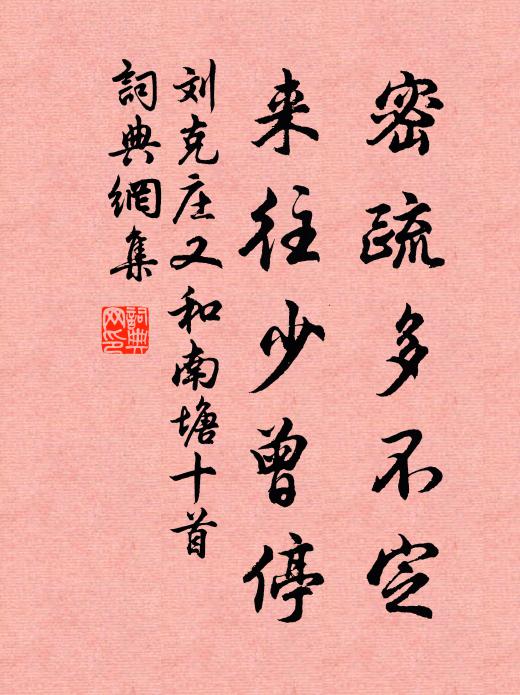 密疏多不定
来往少曾停
刘克庄又和南塘十首
詞典網集
詞典网印